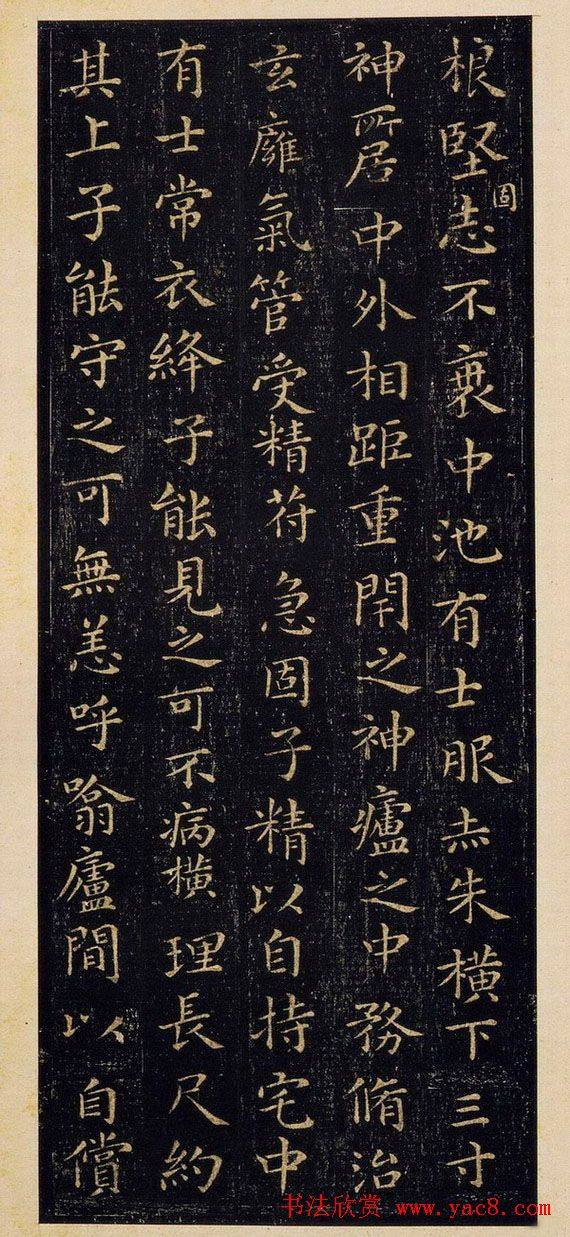 根堅固志不衰中池有士服赤朱横下三寸
神所居中外相距重閇之神廬之中務脩治
玄廱氣管受精苻急固子精以自持宅中
有士常衣絳子能見之可不病横理長尺約
其上子能守之可無恙呼噏廬間以自償
书法欣赏 www.yac8.com